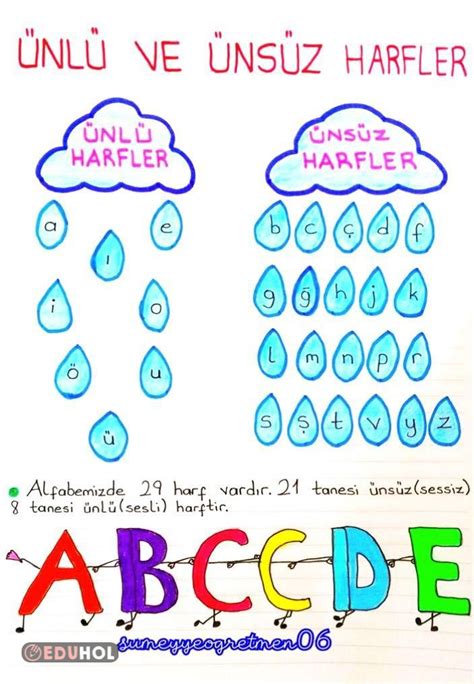 ÜNLÜ VE ÜNSÜZ HARFLER
ÜNLÜ
HARFLER
ÜNSÜZ
HARFLER
a e
ı
i o
ö u
ü
b c ç d f
g ğ h j k
l m n p r
s ş t v y z
Alfabemizde 29 harf vardır. 21 tanesi ünsüz(sessiz)
8 tanesi ünlü(sesli) harftir.
ABCCDE
EDUHOL
sumeyyeogretmen06